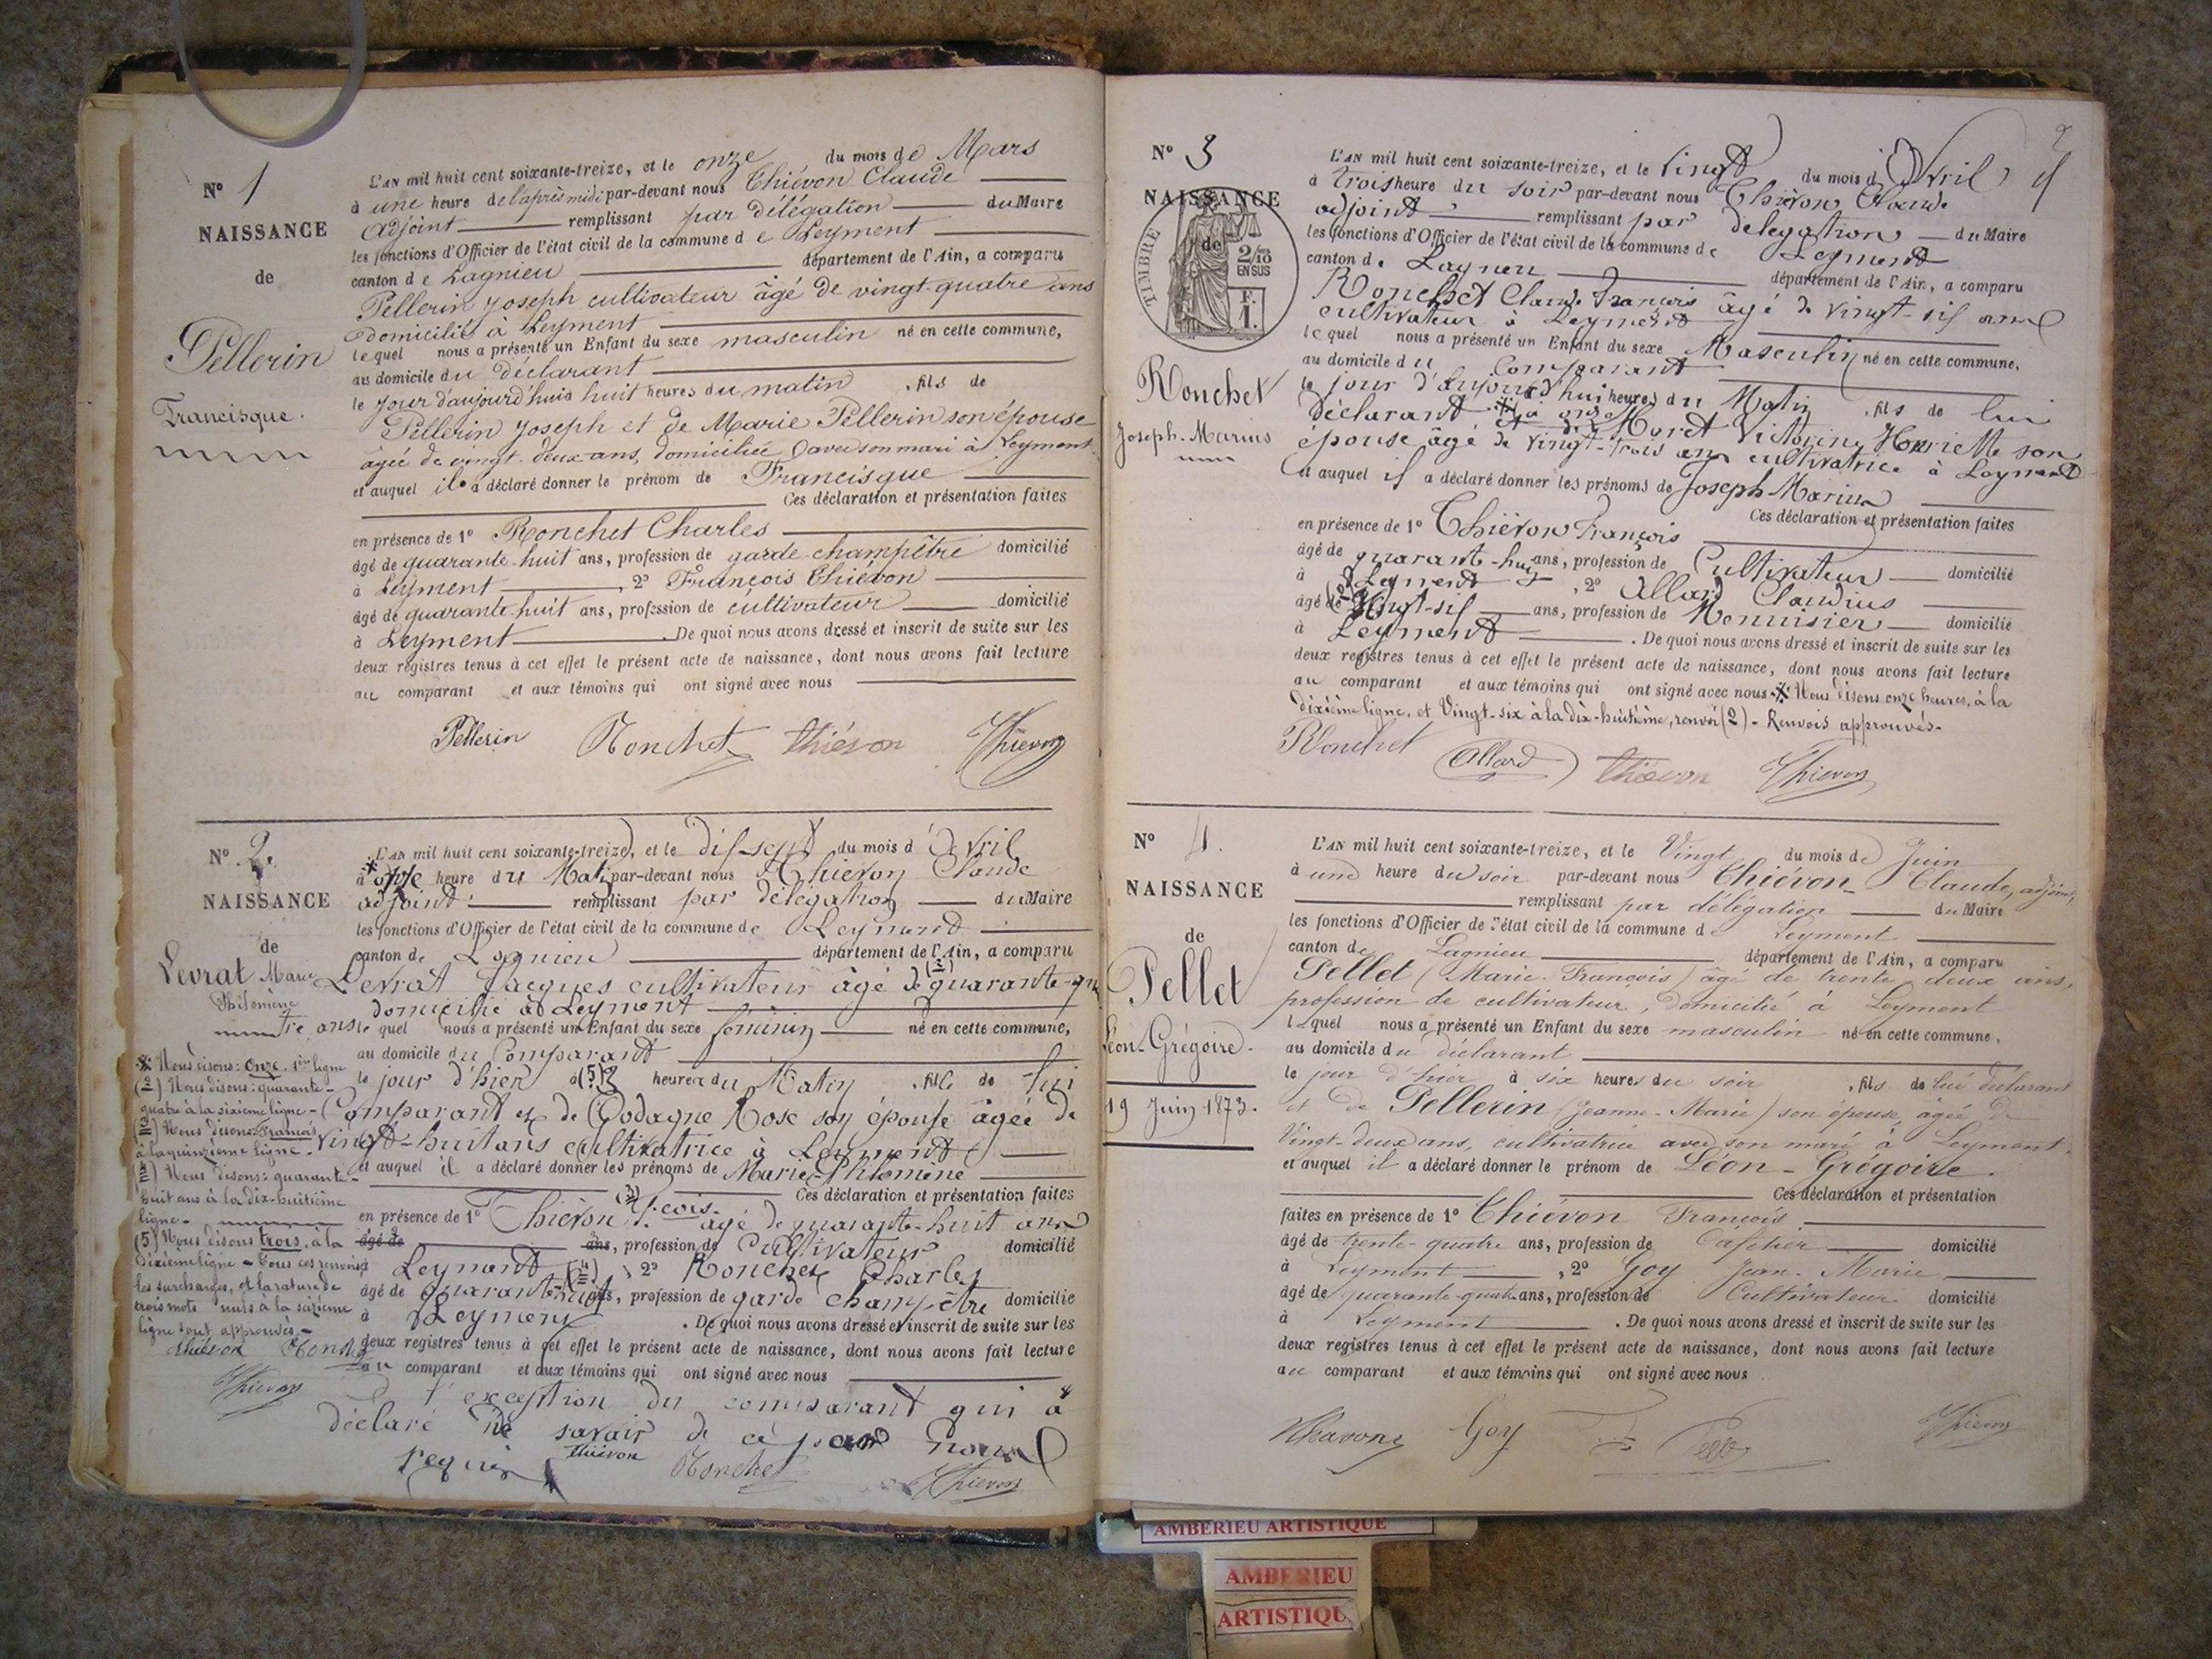 N° 1
NAISSANCE
de
Pellerin
Francisque.
L'AN mil huit cent soixante-treize, et le onze du mois de Mars
à une heure de l'après midi par-devant nous Thiévon Claude
adjoint remplissant par délégation du Maire
les fonctions d'Officier de l'état civil de la commune de Leyment
canton de Lagnieu département de l'Ain, a comparu
Pellerin Joseph cultivateur âgé de vingt-quatre ans
domicilié à Leyment
lequel nous a présenté un Enfant du sexe masculin né en cette commune,
au domicile du déclarant
le jour d'aujourd'hui à huit heures du matin, fils de
Pellerin Joseph et de Marie Pellerin son épouse
âgée de vingt-deux ans, domiciliée avec son mari à Leyment.
et auquel il a déclaré donner le prénom de Francisque
Ces déclaration et présentation faites
en présence de 1° Ronchet Charles
âgé de quarante-huit ans, profession de garde-champêtre domicilié
à Leyment, 2° François Thiévon
âgé de quarante-huit ans, profession de cultivateur domicilié
à Leyment. De quoi nous avons dressé et inscrit de suite sur les
deux registres tenus à cet effet le présent acte de naissance, dont nous avons fait lecture
au comparant et aux témoins qui ont signé avec nous
Pellerin Ronchet thiévon Thievon
N° 2.
NAISSANCE
de
Levrat Marie
Philomène
L'AN mil huit cent soixante-treize, et le dix-sept du mois d'Avril
à * onze heure du Matin par-devant nous Thievon Claude
adjoint remplissant par délégation du Maire
les fonctions d'Officier de l'état civil de la commune de Leyment
canton de Lagnieu département de l'Ain, a comparu
Levrat Jacques cultivateur âgé de (2) quarante-qua
domicilié à Leyment
tre ans lequel nous a présenté un Enfant du sexe féminin né en cette commune,
au domicile du Comparant
le jour d'hier à (5) 3 heures du Matin, fille de lui
Comparant et de Godagne Rose son épouse âgée de
vingt-huit ans cultivatrice à Leyment
et auquel il a déclaré donner les prénoms de Marie-Philomène
Ces déclaration et présentation faites
en présence de 1° Thievon (3) f.cois. âgé de quarante-huit ans
âgé de ans, profession de Cultivateur domicilié
à Leyment (4), 2° Ronchet Charles
âgé de quarante-huit ans, profession de garde champêtre domicilié
à Leyment. De quoi nous avons dressé et inscrit de suite sur les
deux registres tenus à cet effet le présent acte de naissance, dont nous avons fait lecture
au comparant et aux témoins qui ont signé avec nous
à l'exception du comparant qui a
déclaré ne savoir de ce par nous
requis thiévon Ronchet Thievon
* Nous disons: onze. 1ère ligne
(2) Nous disons: quarante-
quatre à la sixième ligne-
(3) Nous disons François
à la quinzième ligne.
(4) Nous disons: quarante-
huit ans à la dix-huitième
ligne-
(5) Nous disons trois, à la
dixième ligne - Tous ces renvois,
les surcharges, et la rature de
trois mots nuls à la seizième
ligne sont approuvés.-
thievon Ronchet
Thievon
N° 3
NAISSANCE
de
TIMBRE
2/10
EN SUS
F.
1.
Ronchet
Joseph-Marius
L'AN mil huit cent soixante-treize, et le Vingt du mois d'Avril
à trois heure du soir par-devant nous Thievon Claude
adjoint remplissant par delegation du Maire
les fonctions d'Officier de l'état civil de la commune de Leyment
canton de Lagneu département de l'Ain, a comparu
Ronchet Claude François âgé de vingt-six ans
cultivateur à Leyment
lequel nous a présenté un Enfant du sexe Masculin né en cette commune,
au domicile du Comparant
le jour d'aujourd'hui heures du Matin, fils de lui
déclarant * à onze et de Moret Victorine Henriette son
épouse âgé de vingt-trois ans cultivatrice à Leyment
et auquel il a déclaré donner les prénoms de Joseph Marius
Ces déclaration et présentation faites
en présence de 1° Thiévon François
âgé de quarante-huit ans, profession de Cultivateur domicilié
à Leyment, 2° Allard Claudius
âgé de (2) Vingt-six ans, profession de Menuisier domicilié
à Leyment. De quoi nous avons dressé et inscrit de suite sur les
deux registres tenus à cet effet le présent acte de naissance, dont nous avons fait lecture
au comparant et aux témoins qui ont signé avec nous * Nous disons onze heures, à la
dixième ligne, et Vingt-six à la dix-huitième, renvoi (2) - Renvois approuvés-
Ronchet Allard thiévon Thievon
N° 4.
NAISSANCE
de
Pellet
Léon-Grégoire.
19 Juin 1873.
L'AN mil huit cent soixante-treize, et le Vingt du mois de Juin
à une heure du soir par-devant nous Thiévon Claude, adjoint,
remplissant par délégation du Maire
les fonctions d'Officier de l'état civil de la commune de Leyment
canton de Lagnieu département de l'Ain, a comparu
Pellet (Marie-François) âgé de trente deux ans,
profession de cultivateur, domicilié à Leyment
lequel nous a présenté un Enfant du sexe masculin né en cette commune,
au domicile du déclarant
le jour d'hier à six heures du soir, fils de lui déclarant
et de Pellerin (Jeanne-Marie) son épouse, âgée de
Vingt-deux ans, cultivatrice avec son mari à Leyment.
et auquel il a déclaré donner le prénom de Léon-Grégoire.
Ces déclaration et présentation
faites en présence de 1° Thiévon François
âgé de trente-quatre ans, profession de Cafetier domicilié
à Leyment, 2° Goy Jean-Marie
âgé de quarante-quatre ans, profession de Cultivateur domicilié
à Leyment. De quoi nous avons dressé et inscrit de suite sur les
deux registres tenus à cet effet le présent acte de naissance, dont nous avons fait lecture
au comparant et aux témoins qui ont signé avec nous
Goy Thievon
AMBERIEU ARTISTIQUE
AMBERIEU
ARTISTIQU